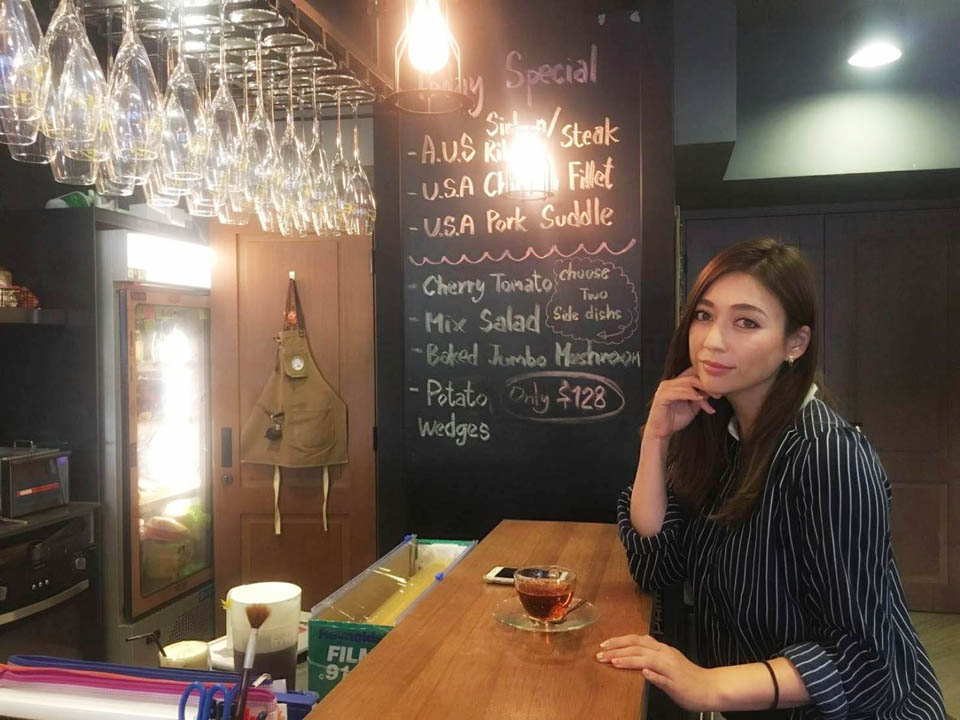 Special
- A.U.S Steak
- U.S.A Fillet
- U.S.A Pork Suddle
- Cherry Tomato
- Mix Salad
- Baked Jumbo Mushroom
- Potato
Wedges
choose
Two
Side dishs
Only $128
Reynolds
FILM